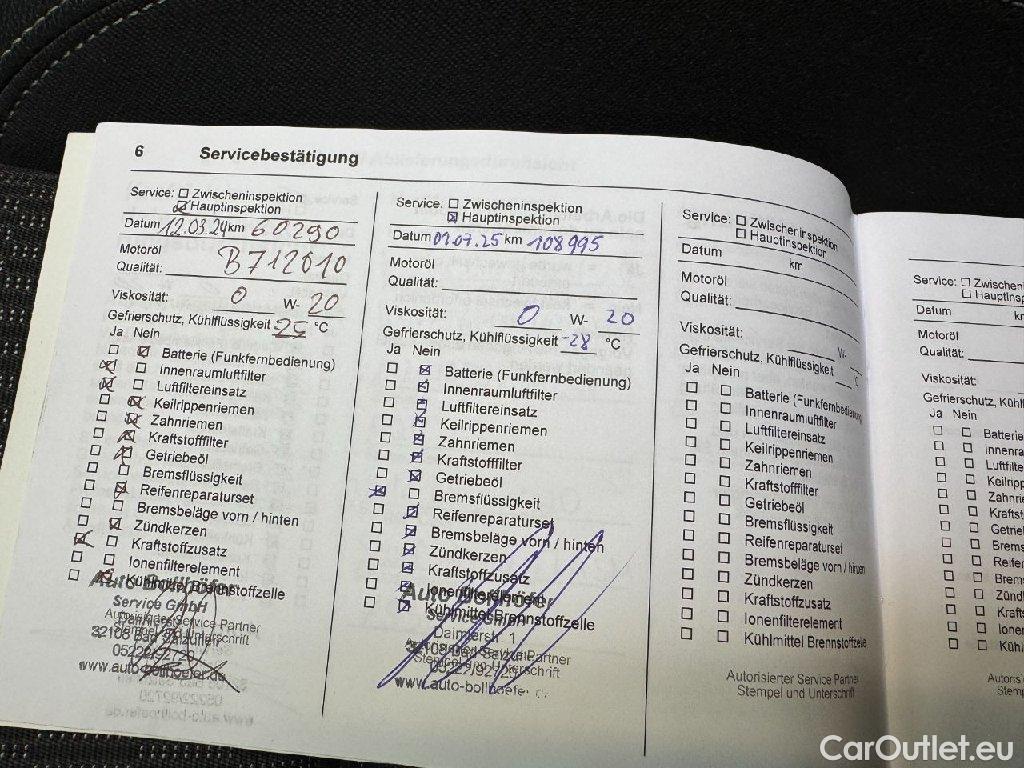 6 Servicebestätigung
Service: Zwischeninspektion
Hauptinspektion
Datum 12.03.24 km 60290
Motoröl
Qualität: B712010
Viskosität: 0 W- 20
Gefrierschutz, Kühlflüssigkeit °C
Ja Nein
Batterie (Funkfernbedienung)
Innenraumluftfilter
Luftfiltereinsatz
Keilrippenriemen
Zahnriemen
Kraftstofffilter
Getriebeöl
Bremsflüssigkeit
Reifenreparaturset
Bremsbeläge vorn / hinten
Zündkerzen
Kraftstoffzusatz
Ionenfilterelement
Kühlmittel Brennstoffzelle
Auto Bollhöfer
Service GmbH
Autorisierter Service Partner
Stempel und Unterschrift
www.auto-bollhoefer.de
Service: Zwischeninspektion
Hauptinspektion
Datum 01.07.25 km 108995
Motoröl
Qualität:
Viskosität: 0 W- 20
Gefrierschutz, Kühlflüssigkeit -28 °C
Ja Nein
Batterie (Funkfernbedienung)
Innenraumluftfilter
Luftfiltereinsatz
Keilrippenriemen
Zahnriemen
Kraftstofffilter
Getriebeöl
Bremsflüssigkeit
Reifenreparaturset
Bremsbeläge vorn / hinten
Zündkerzen
Kraftstoffzusatz
Ionenfilterelement
Kühlmittel Brennstoffzelle
Auto Bollhöfer
Service GmbH
Daimlerstr. 1
Autorisierter Service Partner
Stempel und Unterschrift
www.auto-bollhoefer.de
Service: Zwischeninspektion
Hauptinspektion
Datum km
Motoröl
Qualität:
Viskosität: W-
Gefrierschutz, Kühlflüssigkeit °C
Ja Nein
Batterie (Funkfernbedienung
Innenraumluftfilter
Luftfiltereinsatz
Keilrippenriemen
Zahnriemen
Kraftstofffilter
Getriebeöl
Bremsflüssigkeit
Reifenreparaturset
Bremsbeläge vorn / hinten
Zündkerzen
Kraftstoffzusatz
Ionenfilterelement
Kühlmittel Brennstoffzelle
Autorisierter Service Partner
Stempel und Unterschrift
Service: Zwischeninspektion
Hauptinsp
Datum km
Motoröl
Qualität:
Viskosität:
Gefrierschutz, Kühlfl
Ja Nein
Batterie
Innenra
Luftfilte
Keilripp
Zahnri
Kraftst
Getrieb
Brems
Reifen
Brems
Zünd
Krafts
Ionen
Kühl
Autoris
Stemp
CarOutlet.eu